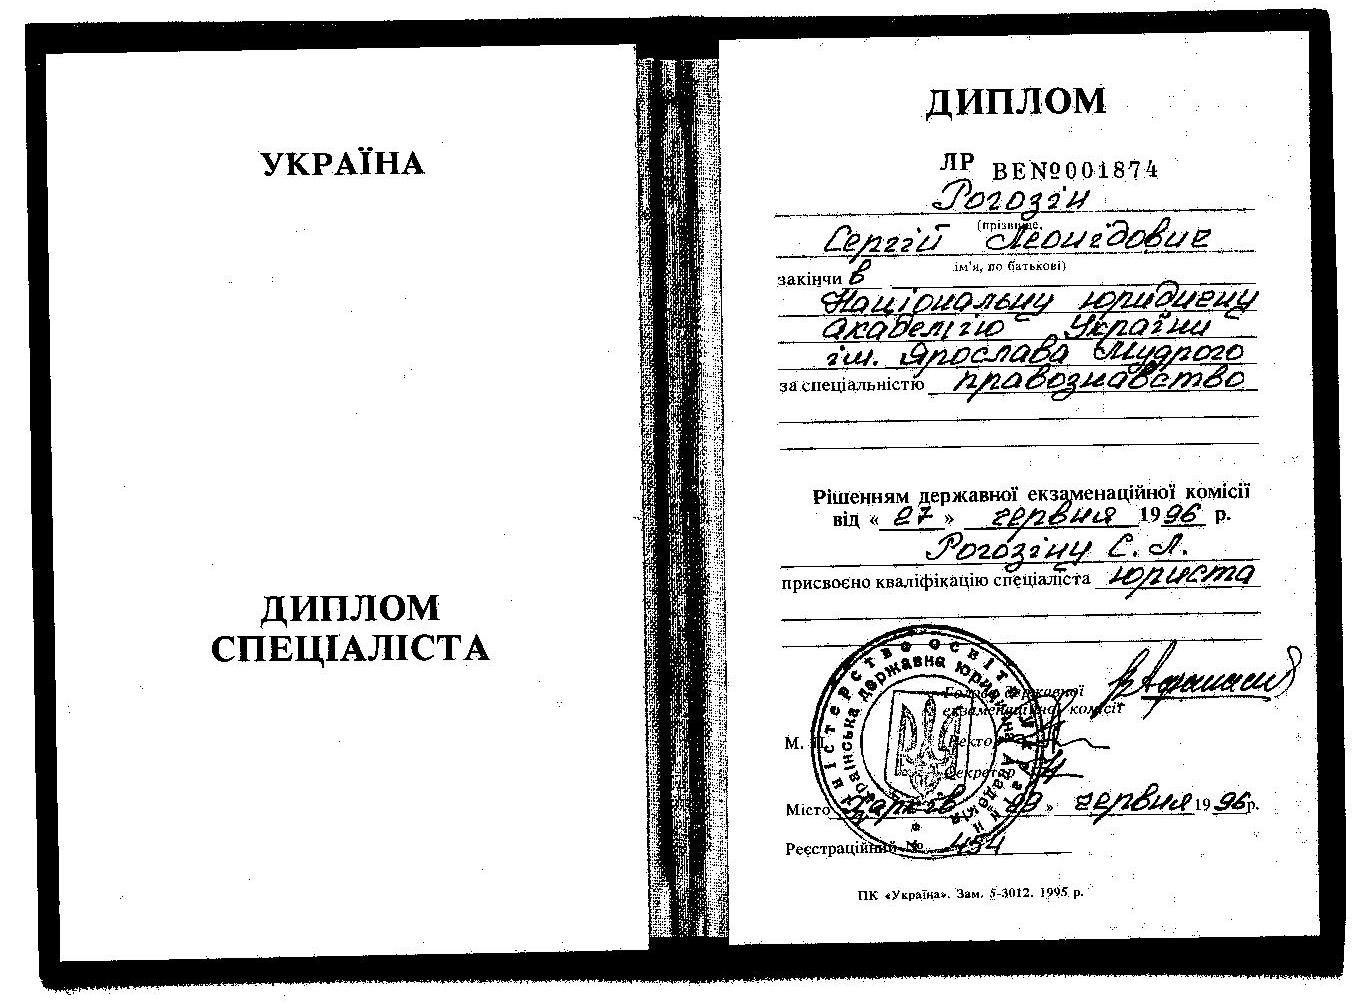 УКРАЇНА
ДИПЛОМ
СПЕЦІАЛІСТА
ДИПЛОМ
ЛР ВЕ№001874
Рогозін
(прізвище,
Сергій Леонідович
ім'я, по батькові)
закінчив
Національну юридичну
академію України
ім. Ярослава Мудрого
за спеціальністю правознавство
Рішенням державної екзаменаційної комісії
від «27» червня 1996 р.
Рогозіну С. Л.
присвоєно кваліфікацію спеціаліста юриста
Міністерство освіти України
Українська державна юридична академія
Голова державної
екзаменаційної комісії
М. П. Ректор
Секретар
Місто Харків 29 » червня 1996р.
Реєстраційний № 454
ПК «Україна». Зам. 5-3012. 1995 р.